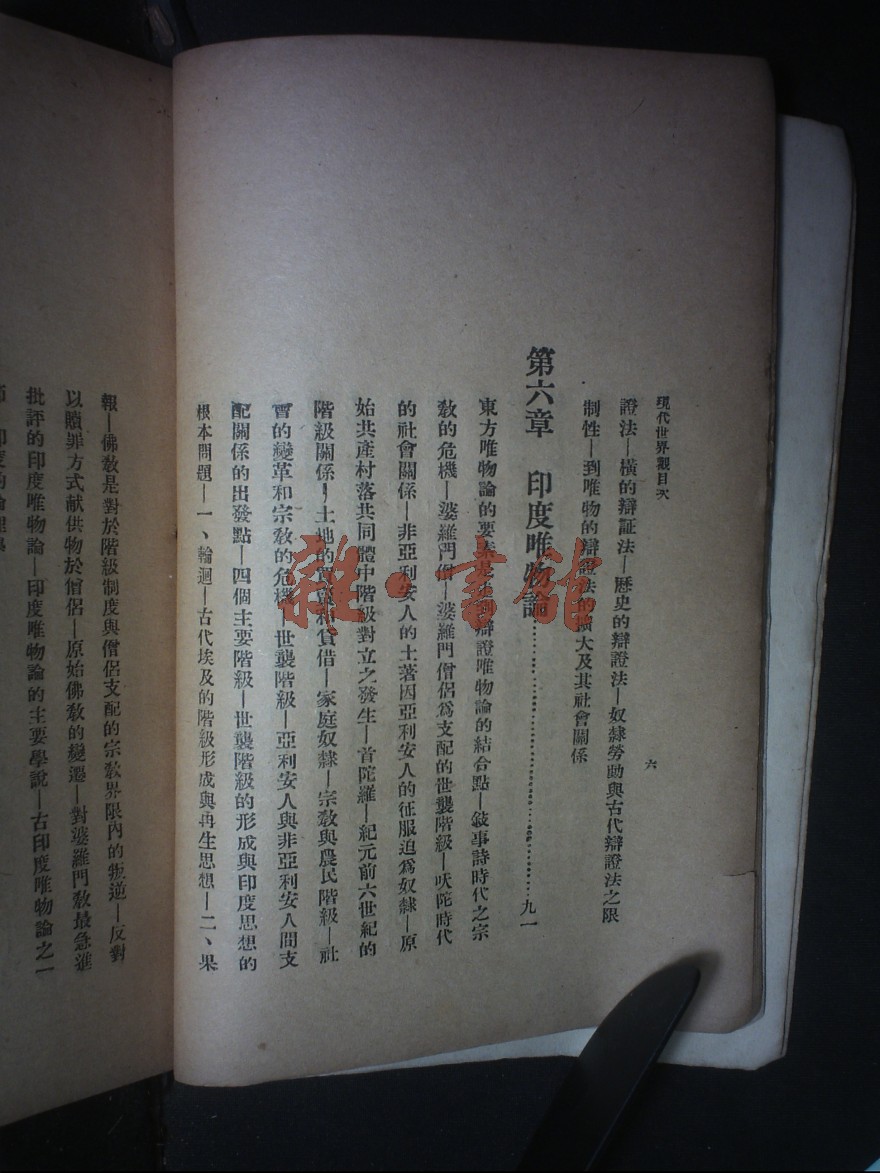 現代世界觀目次
六
證法—橫的辯証法—歷史的辯證法—奴隸勞動與古代辯證法之限
制性—到唯物的辯證法的擴大及其社會關係
第六章 印度唯物論……九一
東方唯物論的要素是 到辯證唯物論的結合點—敍事詩時代之宗
敎的危機—婆羅門 —婆羅門僧侶爲支配的世襲階級—吠陀時代
的社會關係—非亞利安人的土著因亞利安人的征服迫爲奴隸—原
始共產村落共同體中階級對立之發生—首陀羅—紀元前六世紀的
階級關係—土地的 貸借—家庭奴隸—宗敎與農民階級—社
會的變革和宗敎的危機—世襲階級—亞利安人與非亞利安人間支
配關係的出發點—四個主要階級—世襲階級的形成與印度思想的
根本問題—一、輪迴—古代埃及的階級形成與再生思想—二、果
報—佛敎是對於階級制度與僧侶支配的宗敎界限內的叛逆—反對
以贖罪方式献供物於僧侶—原始佛敎的變遷—對婆羅門敎最急進
批評的印度唯物論—印度唯物論的主要學說—古印度唯物論之一
雜·書館